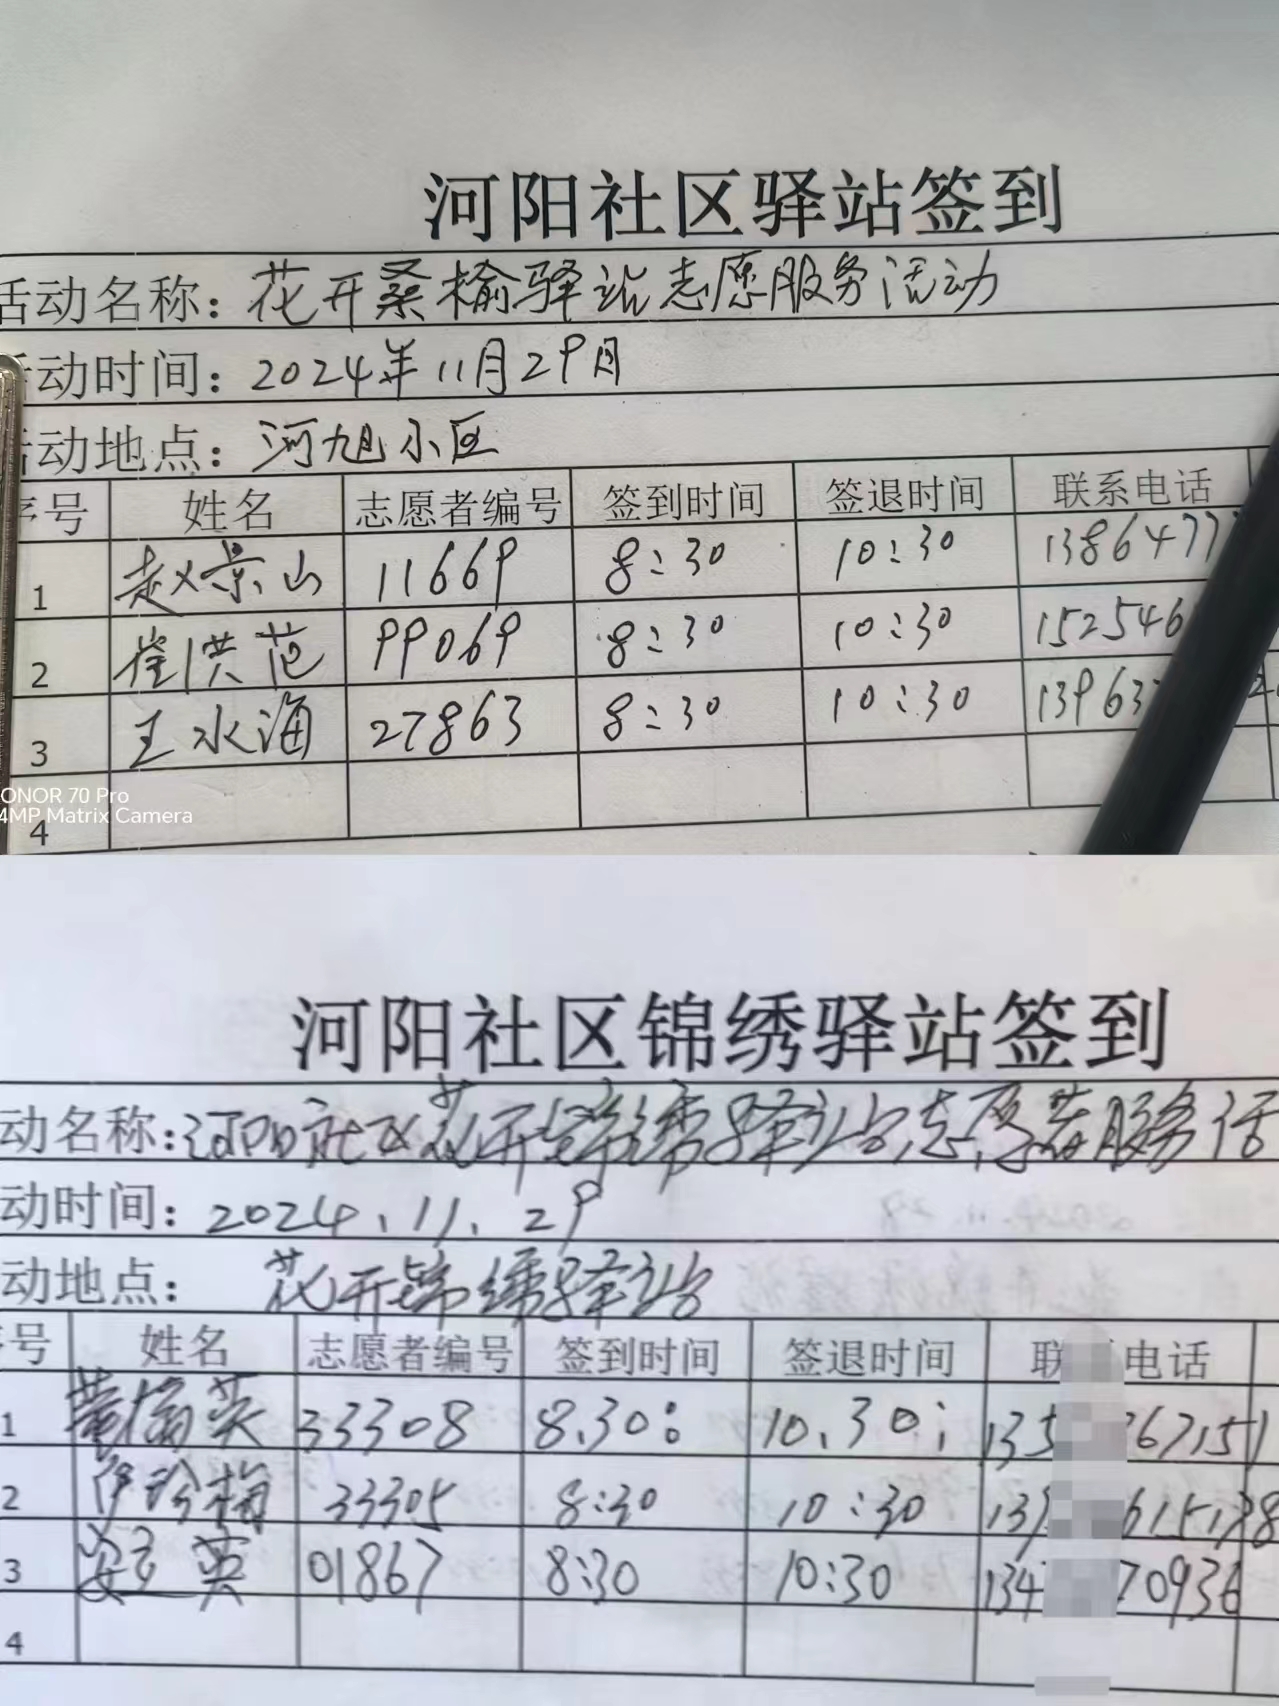 河阳社区驿站签到
活动名称：花开桑榆驿站志愿服务活动
活动时间：2024年11月29日
活动地点：河旭小区
序号 姓名 志愿者编号 签到时间 签退时间 联系电话
1 赵景山 11669 8:30 10:30 1386477
2 崔洪范 99069 8:30 10:30 152546
3 王水海 27863 8:30 10:30 13963
4
ONOR 70 Pro
4MP Matrix Camera
河阳社区锦绣驿站签到
动名称：河阳社区花开锦绣驿站志愿者服务活
动时间：2024.11.29
动地点：花开锦绣驿站
号 姓名 志愿者编号 签到时间 签退时间 联 电话
1 英 33308 8.30: 10.30: 135 67151
2 伊珍梅 33305 8:30 10:30 139 615198
3 安立英 01867 8:30 10:30 134 70936
4